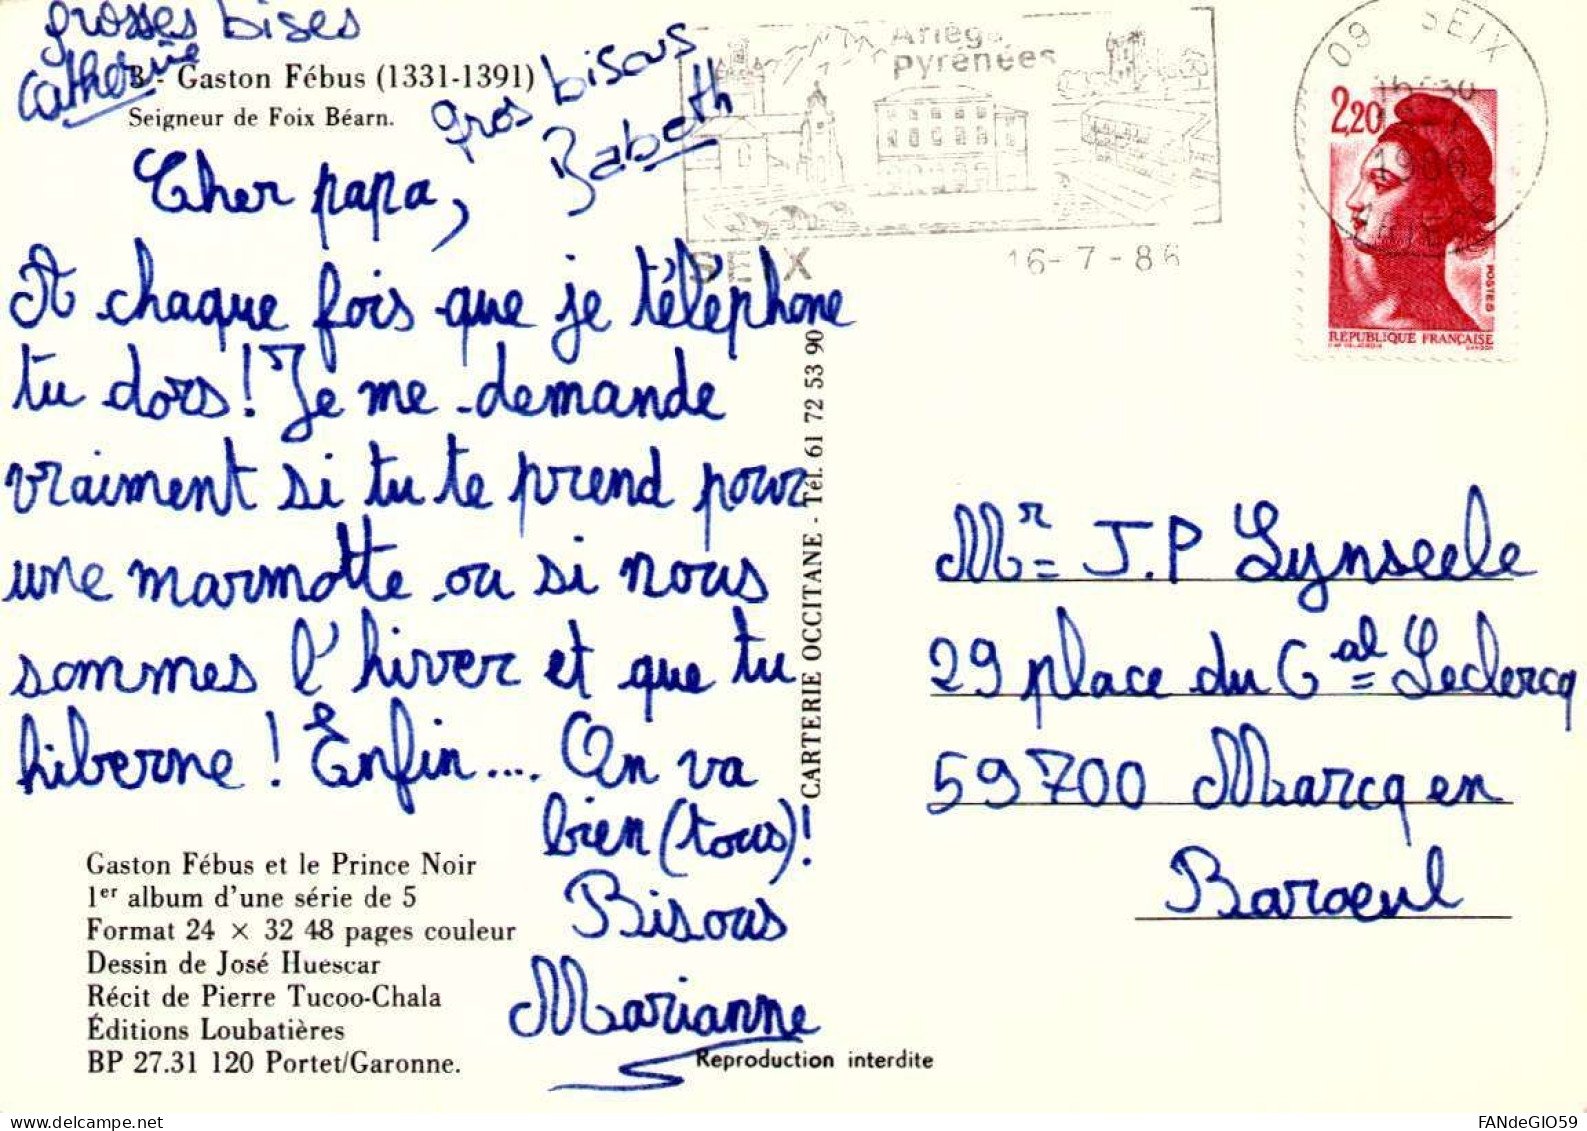 grosses bises
Catherine
3 - Gaston Fébus (1331-1391)
Seigneur de Foix Béarn.
gros bisous
Babeth
Cher papa,
A chaque fois que je téléphone
tu dors ! Je me demande
vraiment si tu te prend pour
une marmotte ou si nous
sommes l'hiver et que tu
hiberne ! Enfin.... On va
bien (tous) !
Bisous
Marianne
Gaston Fébus et le Prince Noir
1er album d'une série de 5
Format 24 × 32 48 pages couleur
Dessin de José Huescar
Récit de Pierre Tucoo-Chala
Éditions Loubatières
BP 27.31 120 Portet/Garonne.
Reproduction interdite
CARTERIE OCCITANE - Tél. 61 72 53 90
Ariège
Pyrénées
SEIX
16-7-86
09 SEIX
1986
ARIEGE
2,20
POSTES
RÉPUBLIQUE FRANÇAISE
Mr J.P Lynseele
29 place du Gal Leclercq
59700 Marcq en
Baroeul
FANdeGIO59